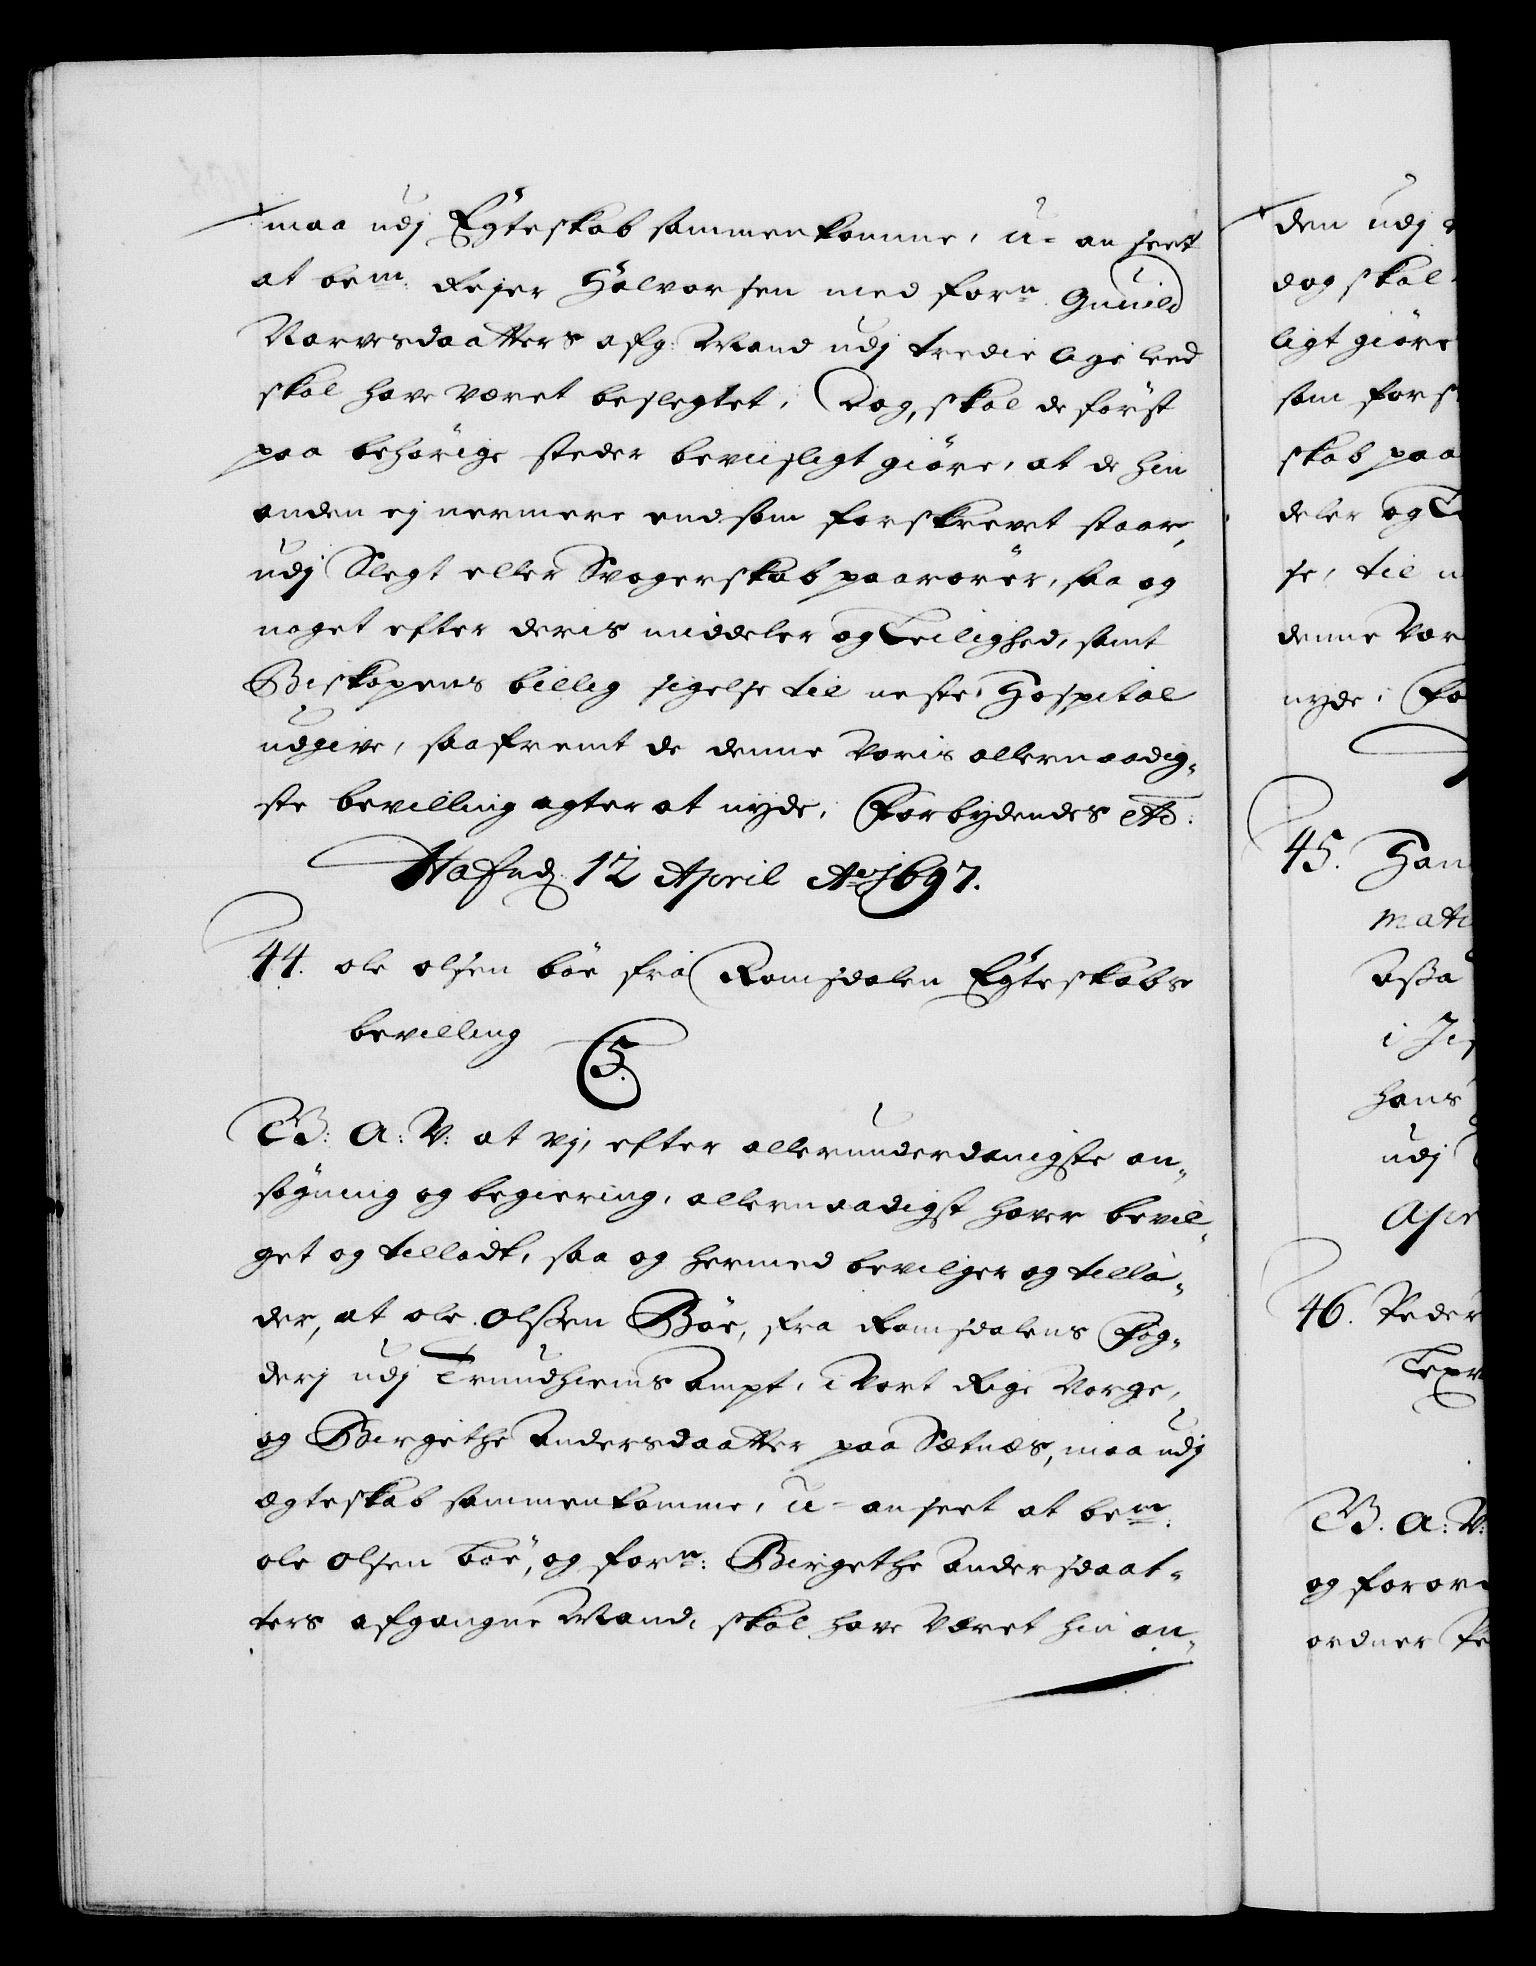 maa udj Egteskab sammenkomme, u-anseet
at bem: Rejer Halvorsen med forn: Gunild
Narvesdaatters afg: Mand udj tredie lige leed
skal have været beslegtet, Dog, skal de först
paa behörige steder beviisligt giöre, at de hin
anden ej nermere end som forskrevet staar,
udj Slegt eller Svogerskab paarörer, saa og
noget efter deris middeler og Leilighed, samt
Biskopens billig sigelse til neste Hospital
udgive, saafremt de denne Voris allernaadig-
ste bevilling agter at nyde, Forbydendes etc:
Hafnd. 12 April Ao 1697.
44. ole olsen böe fra Romsdalen Egteskabs
bevilling
C5.
G: A: V: at vj, efter allerunderdanigste an-
sögning og begiering, allernaadigst haver bevil-
get og tilladt, saa og hermed bevilger og tilla-
der, at ole olssen Böe, fra Romsdalens Fog-
derj udj Trundhiems Ampt, i Vort Rige Norge,
og Beregethe Andersdaatter paa Sætnæs, maa udj
egteskab sammenkomme, u-anseet at bem:
ole olsen böe, og forn: Biregethe Andersdaat-
ters afgangne Mand, skal have været hin an-
den udj
dog skal
ligt giöre
som forsk
skab paa
deler og L
se, til n
denne Vor
nyde, Fo
45. Han
mati
Assa
i Ji
hans
udj
Apr
46. Peder
Expr
G. A: V:
og foror
ordner Pe